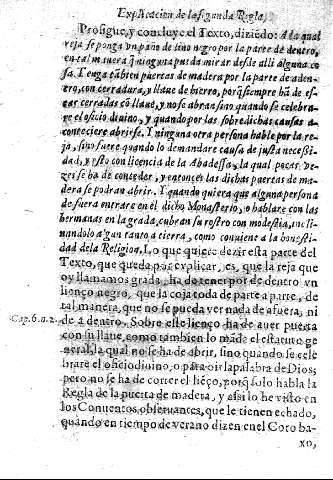 Explicacion de la segunda Regla,
Prosigue, y concluye el Texto, diziēdo: A la qual
reja se ponga vn paño de lino negro por la parte de dentro,
en tal manera q̄ ninguna pueda mirar desde alli alguna co
sa. Tenga tābien puertas de madera por la parte de aden-
tro, con cerradura, y llave de hierro, porq̄ siempre hā de es-
tar cerradas cō llave, y no se abran sino quando se celebra-
re el oficio divino, y quando por las sobredichas causas a-
conteciere abrirse. Y ninguna otra persona hable por la re-
ja, sino fuere quando lo demandare causa de justa necessi-
dad, y esto con licencia de la Abadessa, la qual pocas ve-
zes se ha de conceder, y entonces las dichas puertas de ma-
dera se podran abrir. Y quando quiera que alguna persona
de fuera entrare en el dicho Monasterio, o hablare con las
hermanas en la grada, cubran su rostro con modestia, incli
nandolo algun tanto a tierra, como conviene a la honesti-
dad de la Religion. Lo que quiere dezir esta parte del
Texto, que queda por explicar, es, que la reja que
oy llamamos grada, ha de tener por de dentro vn
lienço negro, que la coja toda de parte a parte, de
tal manera, que no se pueda ver nada de afuera, ni
Cap. 6. n. 2. de a dentro. Sobre este lienço ha de aver puerta
con su llave, como tambien lo māda el estatuto ge
neral, la qual no se ha de abrir, sino quando se cele
brare el oficio divino, o para oir la palabra de Dios;
pero no se ha de correr el liēço, porq̄ solo habla la
Regla de la puerta de madera, y assi lo he visto en
los Conventos observantes, que le tienen echado,
quando en tiempo de verano dizen en el Coro ba-
xo,